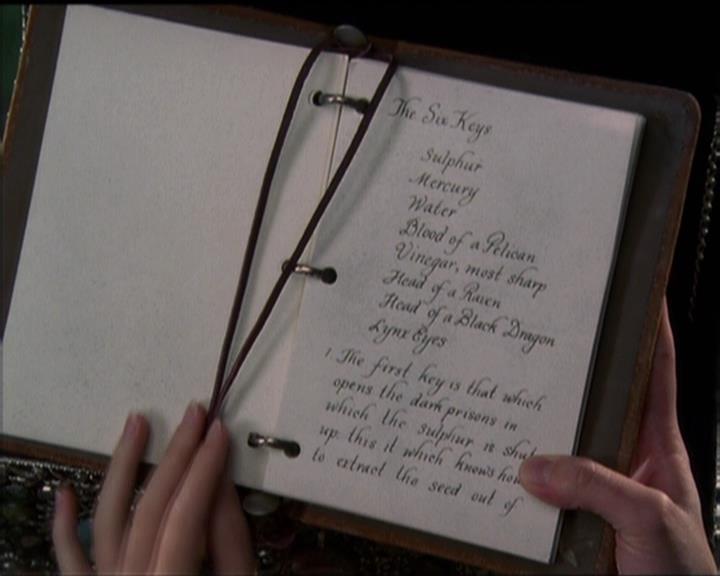 The Six Keys
Sulphur
Mercury
Water
Blood of a Pelican
Vinegar, most sharp
Head of a Raven
Head of a Black Dragon
Lynx Eyes
1. The first key is that which
opens the dark prisons in
which the sulphur is shut
up this it which knows how
to extract the seed out of